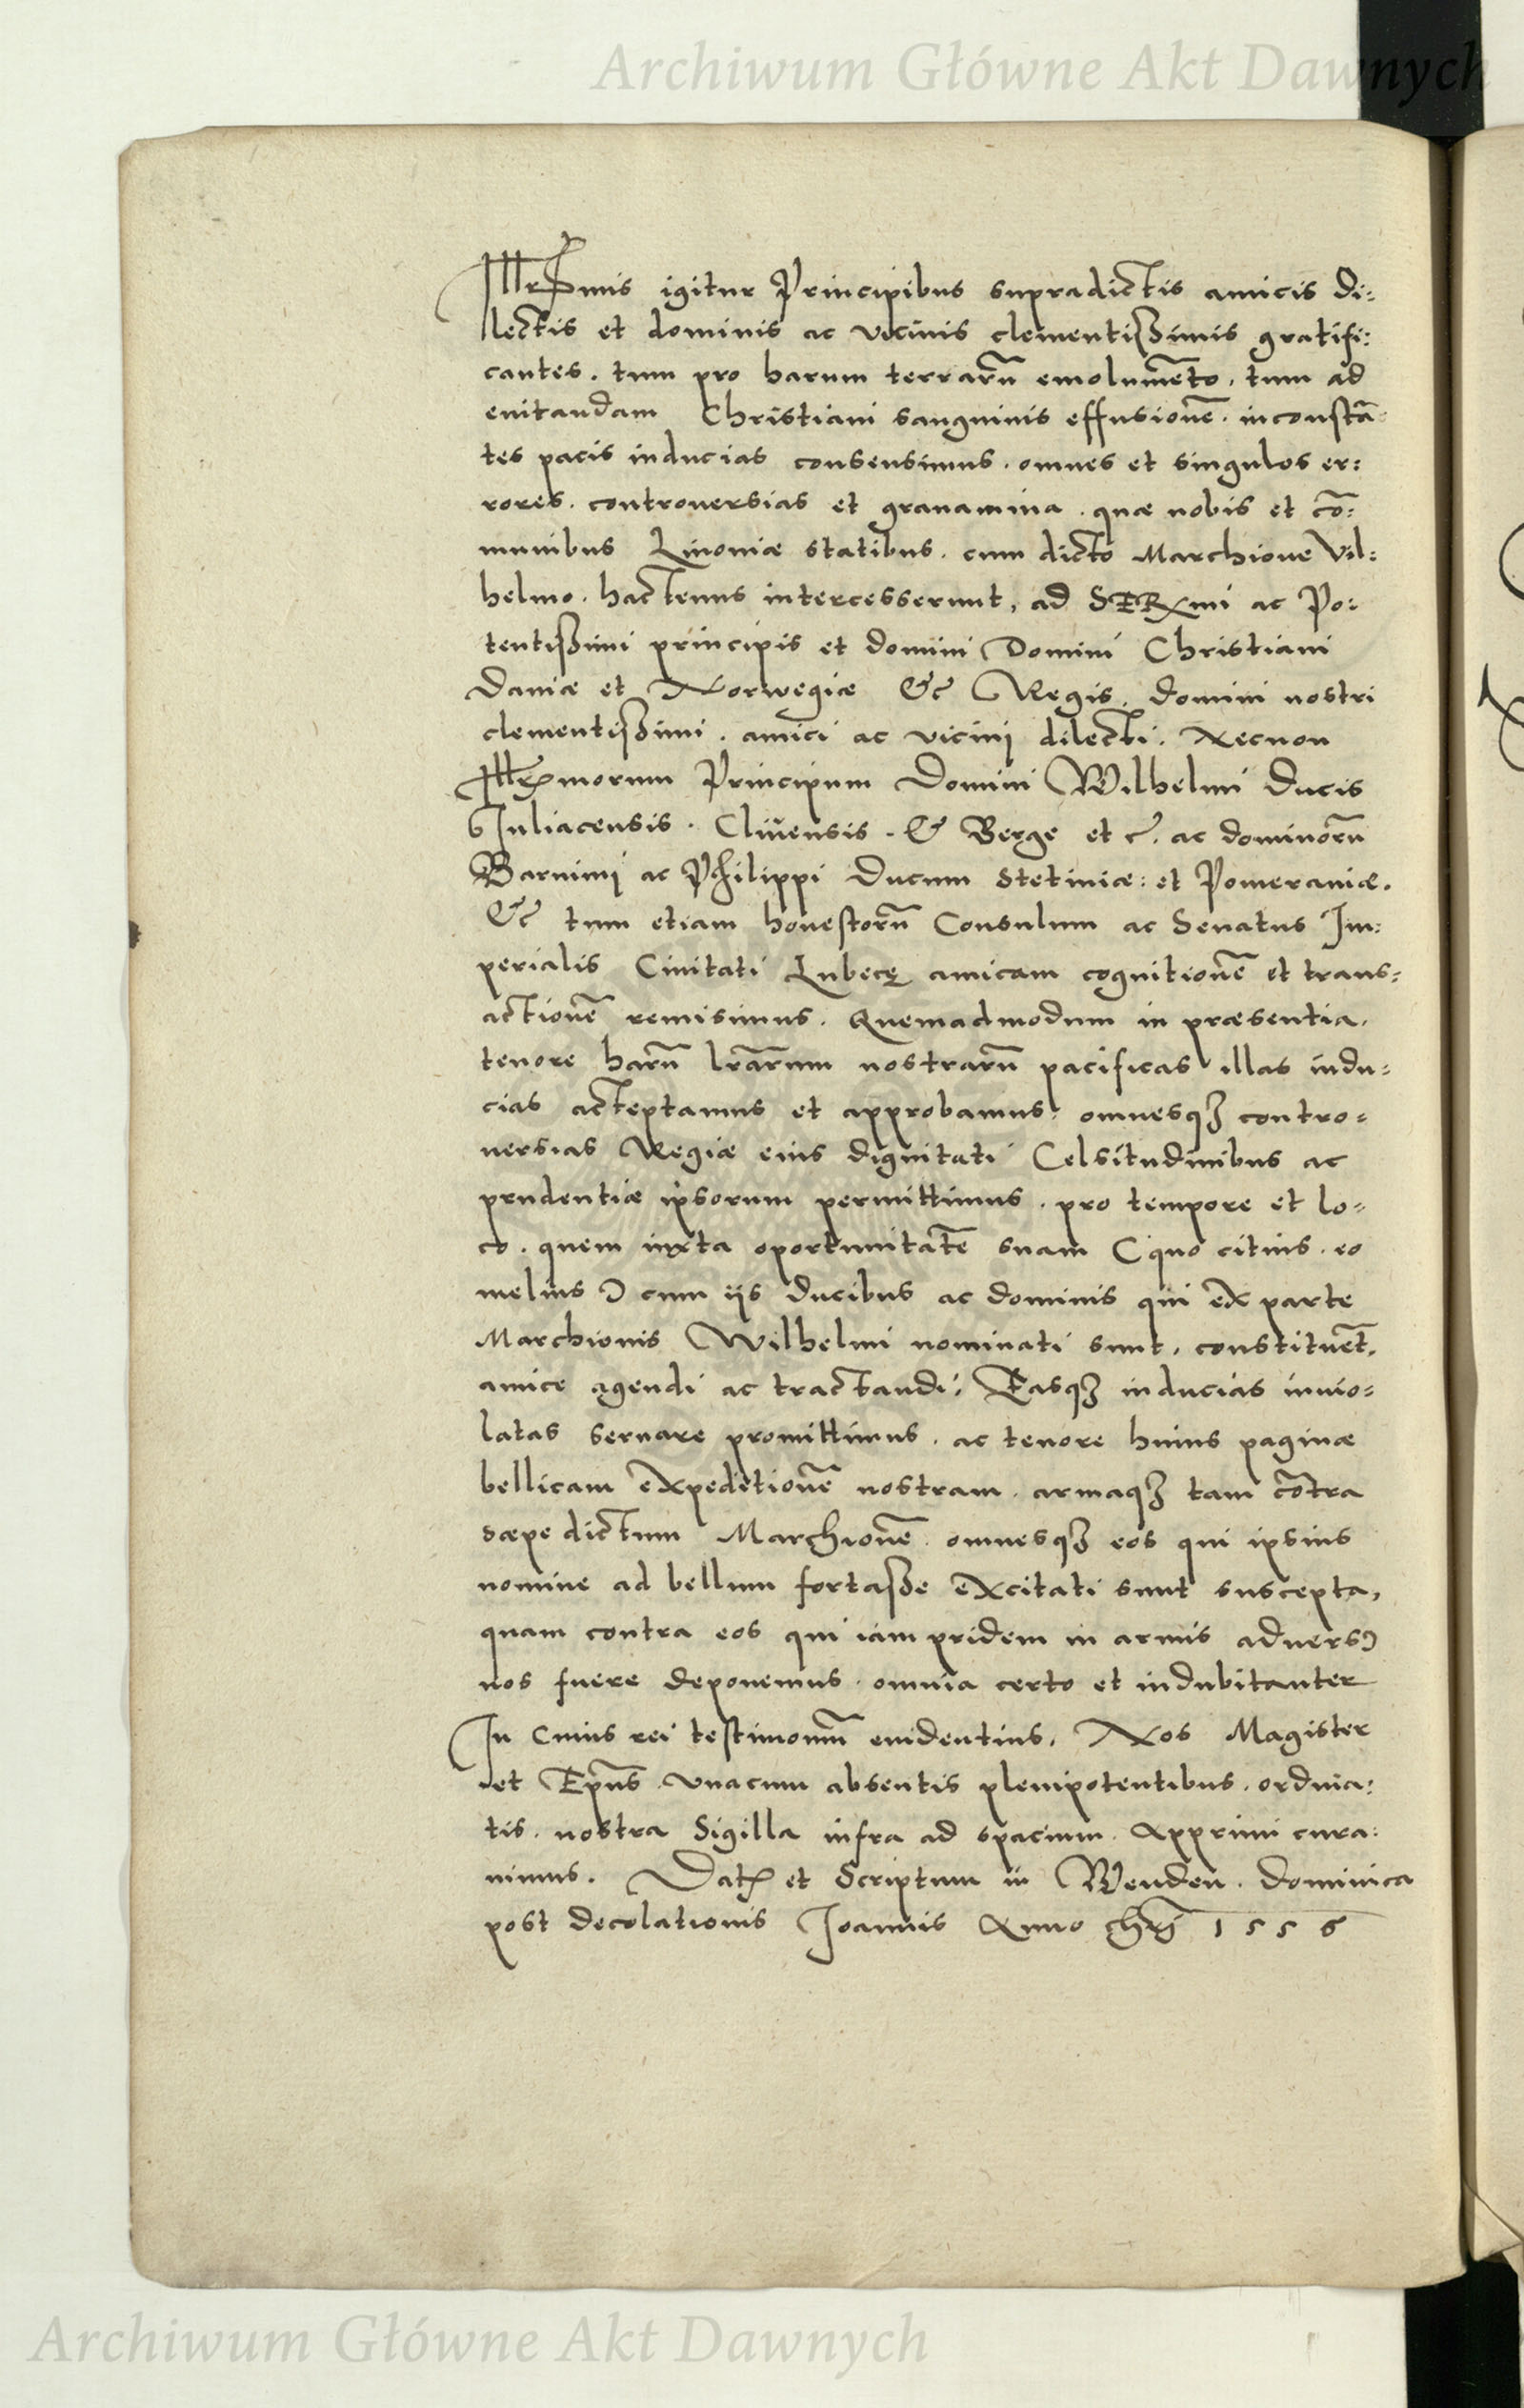 Archiwum Główne Akt Dawnych
Illr̄mis igitur Principibus supradictis amicis di:
lectis et dominis ac vicinis clementißimis gratifi:
cantes. tum pro harum terrarū emolumēto, tum ad
euitandam Christiani sanguinis effusionē. inconstā:
tes pacis inducias consensimus. omnes et singulos er:
rores. controuersias et grauamina. quæ nobis et cō:
munibus Liuoniæ statibus. cum dicto Marchione Vil:
helmo. hactenus intercesserunt, ad SERmi ac Po:
tentißimi principis et domini Domini Christiani
Daniæ et Norwegiæ &c Regis, domini nostri
clementißimi. amici ac vicinj dilecti. Necnon
Illr̄morum Principum Domini Wilhelmi Ducis
Iuliacensis. Cliuensis. & Berge et c. ac dominorū
Barnimj ac Philippi Ducum Stetiniæ: et Pomeraniæ.
&c tum etiam honestorū Consulum ac Senatus Im:
perialis Ciuitati Lubecę amicam cognitionē et trans=
actionē remisimus. Quemadmodum in præsentia,
tenore harū lrārum nostrarū pacificas illas indu=
cias acteptamus et approbamus: omnesqꝫ contro=
uersias Regiæ eius dignitati Celsitudinibus ac
prudentiæ ipsorum permittimus. pro tempore et lo=
co. quem iuxta oportunitatē suam (quo citius. eo
melius) cum iis Ducibus ac dominis qui ex parte
Marchionis Wilhelmi nominati sunt, constituēt,
amice agendi ac tractandi: Easqꝫ inducias inuio=
latas seruare promittimus. ac tenore huius paginæ
bellicam expeditionē nostram. armaqꝫ tam cōtra
sæpe dictum Marchionē. omnesqꝫ eos qui ipsius
nomine ad bellum fortaße excitati sunt suscepta,
quam contra eos qui iam pridem in armis aduersꝰ
nos fuere deponemus. omnia certo et indubitanter
In Cuius rei testimoniū euidentius, Nos Magister
et Ep̄us. vnacum absentis plenipotentibus. ordina:
tis. nostra Sigilla infra ad spacium. Apprimi cura:
uimus. Datꝭ et Scriptum in Wenden. Dominica
post decolationis Joannis Anno chrī 1556
Archiwum Główne Akt Dawnych